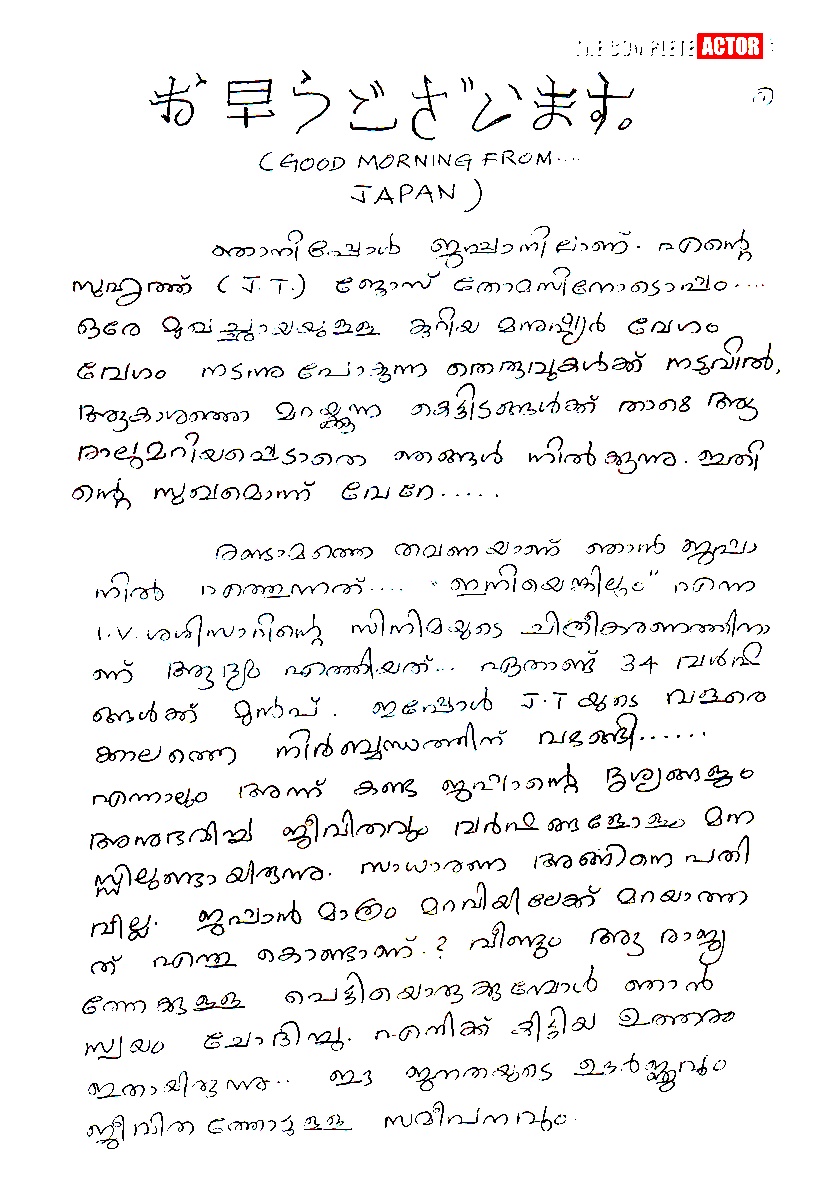 THE COMPLETE ACTOR
お早うございます。
(GOOD MORNING FROM....
JAPAN)
ഞാനിപ്പോൾ ജപ്പാനിലാണ്. എന്റെ
സുഹൃത്ത് (J.T.) ജോസ് തോമസിനോടൊപ്പം....
ഒരേ മുഖച്ഛായയുള്ള കുറിയ മനുഷ്യർ വേഗം
വേഗം നടന്നു പോകുന്ന തെരുവുകൾക്ക് നടുവിൽ,
ആകാശത്തെ മറയ്ക്കുന്ന കെട്ടിടങ്ങൾക്ക് താഴെ ആ
രാലുമറിയപ്പെടാതെ ഞങ്ങൾ നിൽക്കുന്നു. ഇതി
ന്റെ സുഖമൊന്ന് വേറേ.....
രണ്ടാമത്തെ തവണയാണ് ഞാൻ ജപ്പാ
നിൽ എത്തുന്നത്.... "ഇനിയെങ്കിലും" എന്ന
I.V. ശശിസാറിന്റെ സിനിമയുടെ ചിത്രീകരണത്തിനാ
ണ് ആദ്യം എത്തിയത്... ഏതാണ്ട് 34 വർഷ
ങ്ങൾക്ക് മുൻപ്. ഇപ്പോൾ J.T യുടെ വളരെ
ക്കാലത്തെ നിർബ്ബന്ധത്തിന് വഴങ്ങി......
എന്നാലും അന്ന് കണ്ട ജപ്പാന്റെ ദൃശ്യങ്ങളും
അനുഭവിച്ച ജീവിതവും വർഷങ്ങളോളം മന
സ്സിലുണ്ടായിരുന്നു. സാധാരണ അങ്ങിനെ പതി
വില്ല. ജപ്പാൻ മാത്രം മറവിയിലേക്ക് മറയാത്ത
ത് എന്തു കൊണ്ടാണ്.? വീണ്ടും ആ രാജ്യ
ത്തേക്കുള്ള പെട്ടിയൊരുക്കുമ്പോൾ ഞാൻ
സ്വയം ചോദിച്ചു. എനിക്ക് കിട്ടിയ ഉത്തരം
ഇതായിരുന്നു.. ഈ ജനതയുടെ ഊർജ്ജവും
ജീവിതത്തോടുള്ള സമീപനവും.